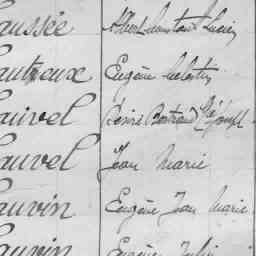 aussée Albert Constant Lucien
autreux Eugène Célestin
auvel Denis Bertrand Mie Joseph
auvel Jean Marie
auvin Eugène Jean Marie
auvin Eugène Julien